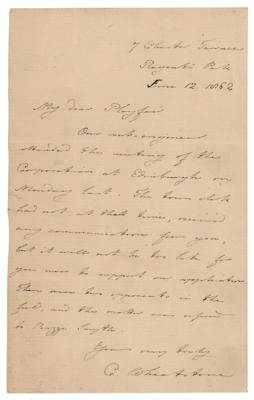 7 Chester Terrace
Regent's Park
June 12. 1862
My dear Playfair
Our sub-engineer
attended the meeting of the
Corporation at Edinburgh on
Monday last. The town clerk
had not, at that time, received
any communication from you,
but it will not be too late for
you now to support our application
There were two opponents in the
field, and the matter was referred
to Piazzi Smyth.
Yours very truly
C. Wheatstone